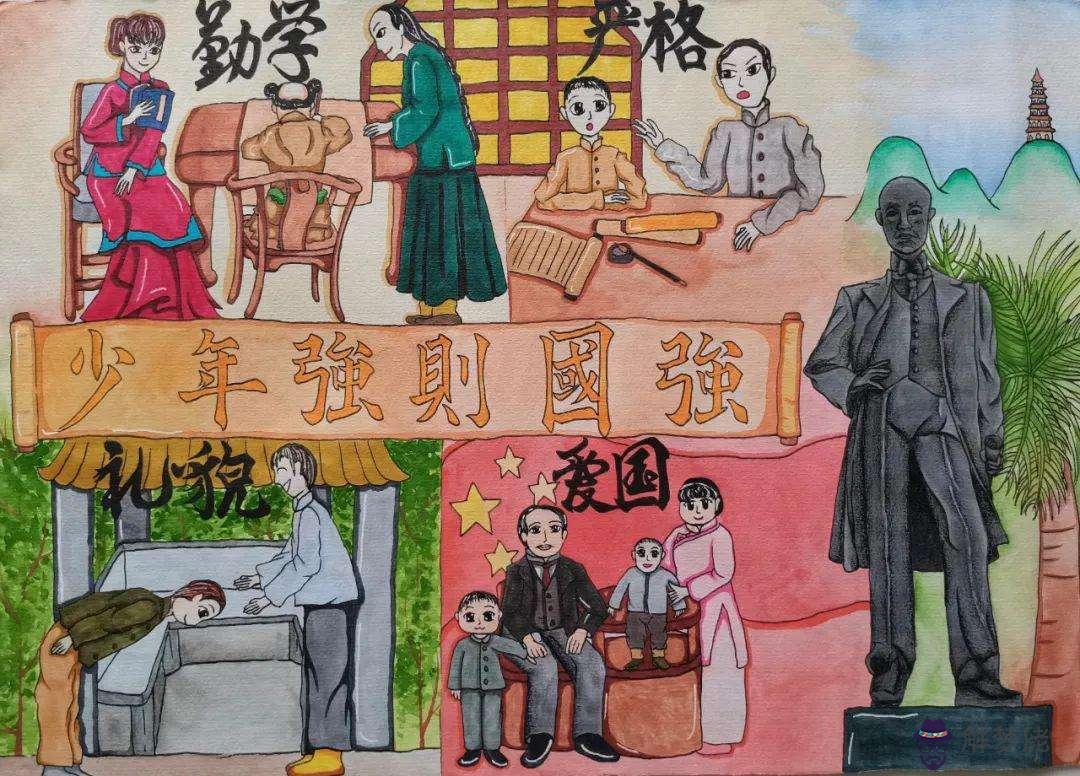 勤学
严格
少年強則國強
礼貌
爱国